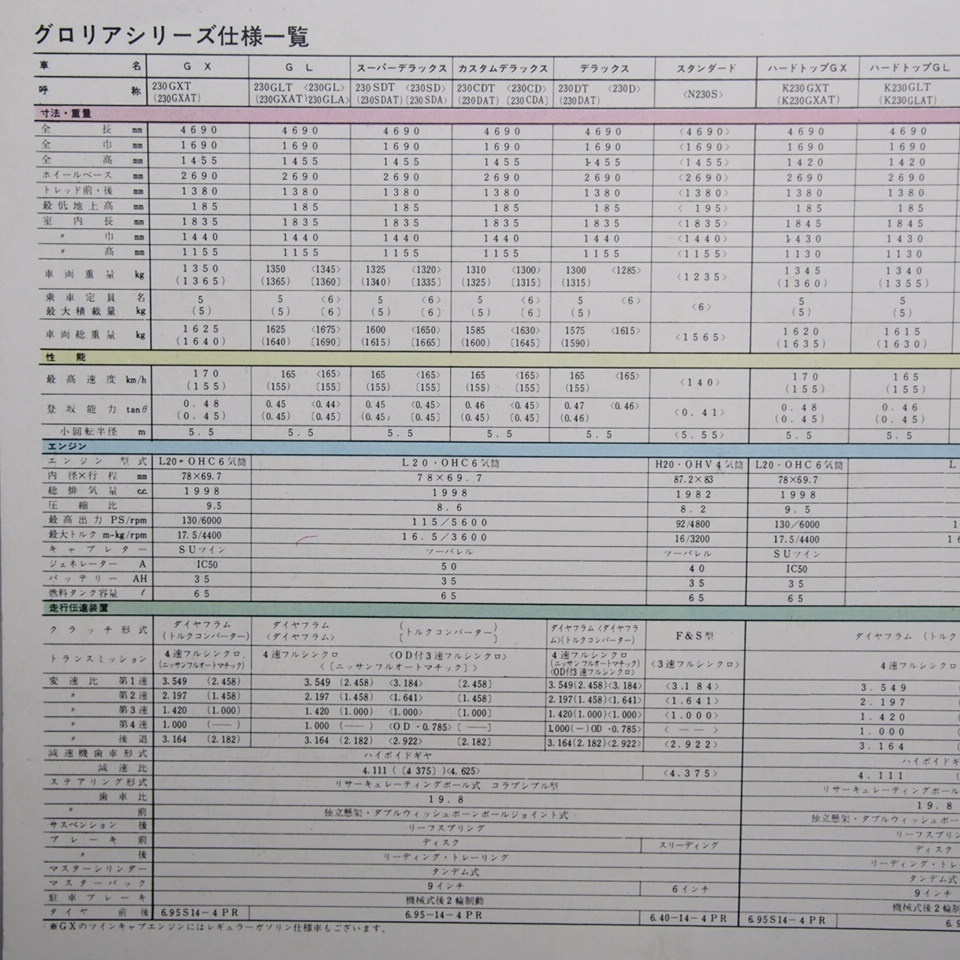 グロリアシリーズ仕様一覧
車名 GX GL スーパーデラックス カスタムデラックス デラックス スタンダード ハードトップGX ハードトップGL
呼称 230GXT 230GLT 〈230GL〉 230SDT 〈230SD〉 230CDT 〈230CD〉 230DT 〈230D〉 〈N230S〉 K230GXT K230GLT
(230GXAT) (230GXAT)〔230GLA〕 (230SDAT)〔230SDA〕 (230DAT)〔230CDA〕 (230DAT) (K230GXAT) (K230GLAT)
寸法・重量
全長 mm 4690 4690 4690 4690 4690 〈4690〉 4690 4690
全巾 mm 1690 1690 1690 1690 1690 〈1690〉 1690 1690
全高 mm 1455 1455 1455 1455 1455 〈1455〉 1420 1420
ホイールベース mm 2690 2690 2690 2690 2690 〈2690〉 2690 2690
トレッド前・後 mm 1380 1380 1380 1380 1380 〈1380〉 1380 1380
最低地上高 mm 185 185 185 185 185 〈195〉 185 185
室内長 mm 1835 1835 1835 1835 1835 〈1835〉 1845 1845
〃 巾 mm 1440 1440 1440 1440 1440 〈1440〉 1430 1430
〃 高 mm 1155 1155 1155 1155 1155 〈1155〉 1130 1130
車両重量 kg 1350 1350 〈1345〉 1325 〈1320〉 1310 〈1300〉 1300 〈1285〉 〈1235〉 1345 1340
(1365) (1365) 〔1360〕 (1340) 〔1335〕 (1325) 〔1315〕 (1315) (1360) (1355)
乗車定員 名 5 5 〈6〉 5 〈6〉 5 〈6〉 5 〈6〉 〈6〉 5 5
最大積載量 kg (5) (5) 〔6〕 (5) 〔6〕 (5) 〔6〕 (5) (5) (5)
車両総重量 kg 1625 1625 〈1675〉 1600 〈1650〉 1585 〈1630〉 1575 〈1615〉 〈1565〉 1620 1615
(1640) (1640) 〔1690〕 (1615) 〔1665〕 (1600) 〔1645〕 (1590) (1635) (1630)
性能
最高速度 km/h 170 165 〈165〉 165 〈165〉 165 〈165〉 165 〈165〉 〈140〉 170 165
(155) (155) 〔155〕 (155) 〔155〕 (155) 〔155〕 (155) (155) (155)
登坂能力 tanθ 0.48 0.45 〈0.44〉 0.45 〈0.45〉 0.46 〈0.45〉 0.47 〈0.46〉 〈0.41〉 0.48 0.46
(0.45) (0.45) 〔0.45〕 (0.45) 〔0.45〕 (0.45) 〔0.45〕 (0.46) (0.45) (0.45)
小回転半径 m 5.5 5.5 5.5 5.5 5.5 〈5.55〉 5.5 5.5
エンジン
エンジン型式 L20・OHC6気筒 L20・OHC6気筒 H20・OHV4気筒 L20・OHC6気筒 L
内径×行程 mm 78×69.7 78×69.7 87.2×83 78×69.7
総排気量 cc 1998 1998 1982 1998
圧縮比 9.5 8.6 8.2 9.5
最高出力 PS/rpm 130/6000 115/5600 92/4800 130/6000 1
最大トルク m-kg/rpm 17.5/4400 16.5/3600 16/3200 17.5/4400 16
キャブレター SUツイン ツーバレル ツーバレル SUツイン
ジェネレーター A IC50 50 40 IC50
バッテリー AH 35 35 35 35
燃料タンク容量 ℓ 65 65 65 65
走行伝達装置
クラッチ形式 ダイヤフラム (トルクコンバーター) ダイヤフラム 〈ダイヤフラム〉 (トルクコンバーター) ダイヤフラム〈ダイヤフラム〉(トルクコンバーター) F&S型 ダイヤフラム (トルク
トランスミッション 4速フルシンクロ (ニッサンフルオートマチック) 4速フルシンクロ 〈OD付3速フルシンクロ〉 〈〔ニッサンフルオートマチック〕〉 4速フルシンクロ (ニッサンフルオートマチック) 〈OD付3速フルシンクロ〉 〈3速フルシンクロ〉 4速フルシンクロ
変速比 第1速 3.549 (2.458) 3.549 (2.458) 〈3.184〉 〔2.458〕 3.549(2.458)〈3.184〉 〈3.184〉 3.549
〃 第2速 2.197 (1.458) 2.197 (1.458) 〈1.641〉 〔1.458〕 2.197(1.458)〈1.641〉 〈1.641〉 2.197
〃 第3速 1.420 (1.000) 1.420 (1.000) 〈1.000〉 〔1.000〕 1.420(1.000)〈1.000〉 〈1.000〉 1.420
〃 第4速 1.000 (——) 1.000 (——) 〈OD・0.785〉 〔——〕 1.000(—)OD・0.785〉 〈——〉 1.000
〃 後退 3.164 (2.182) 3.164 (2.182) 〈2.922〉 〔2.182〕 3.164(2.182)〈2.922〉 〈2.922〉 3.164
減速機歯車形式 ハイポイドギヤ ハイポイドギ
減速比 4.111 (〔4.375〕)〈4.625〉 〈4.375〉 4.111
ステアリング形式 リサーキュレーティングボール式 コラプシブル型 リサーキュレーティングボール
歯車比 19.8 19.8
〃 前 独立懸架・ダブルウィッシュボーンボールジョイント式 独立懸架・ダブルウィッシュボー
サスペンション 後 リーフスプリング リーフスプリン
ブレーキ 前 ディスク スリーディング ディスク
〃 後 リーディング・トレーリング リーディング・トレ
マスターシリンダー タンデム式 タンデム式
マスターバック 9インチ 6インチ 9インチ
駐車ブレーキ 機械式後2輪制動 機械式後2輪
タイヤ 前後 6.95S14-4PR 6.95-14-4PR 6.40-14-4PR 6.95S14-4PR 6.9
※GXのツインキャブエンジンにはレギュラーガソリン仕様車もございます。